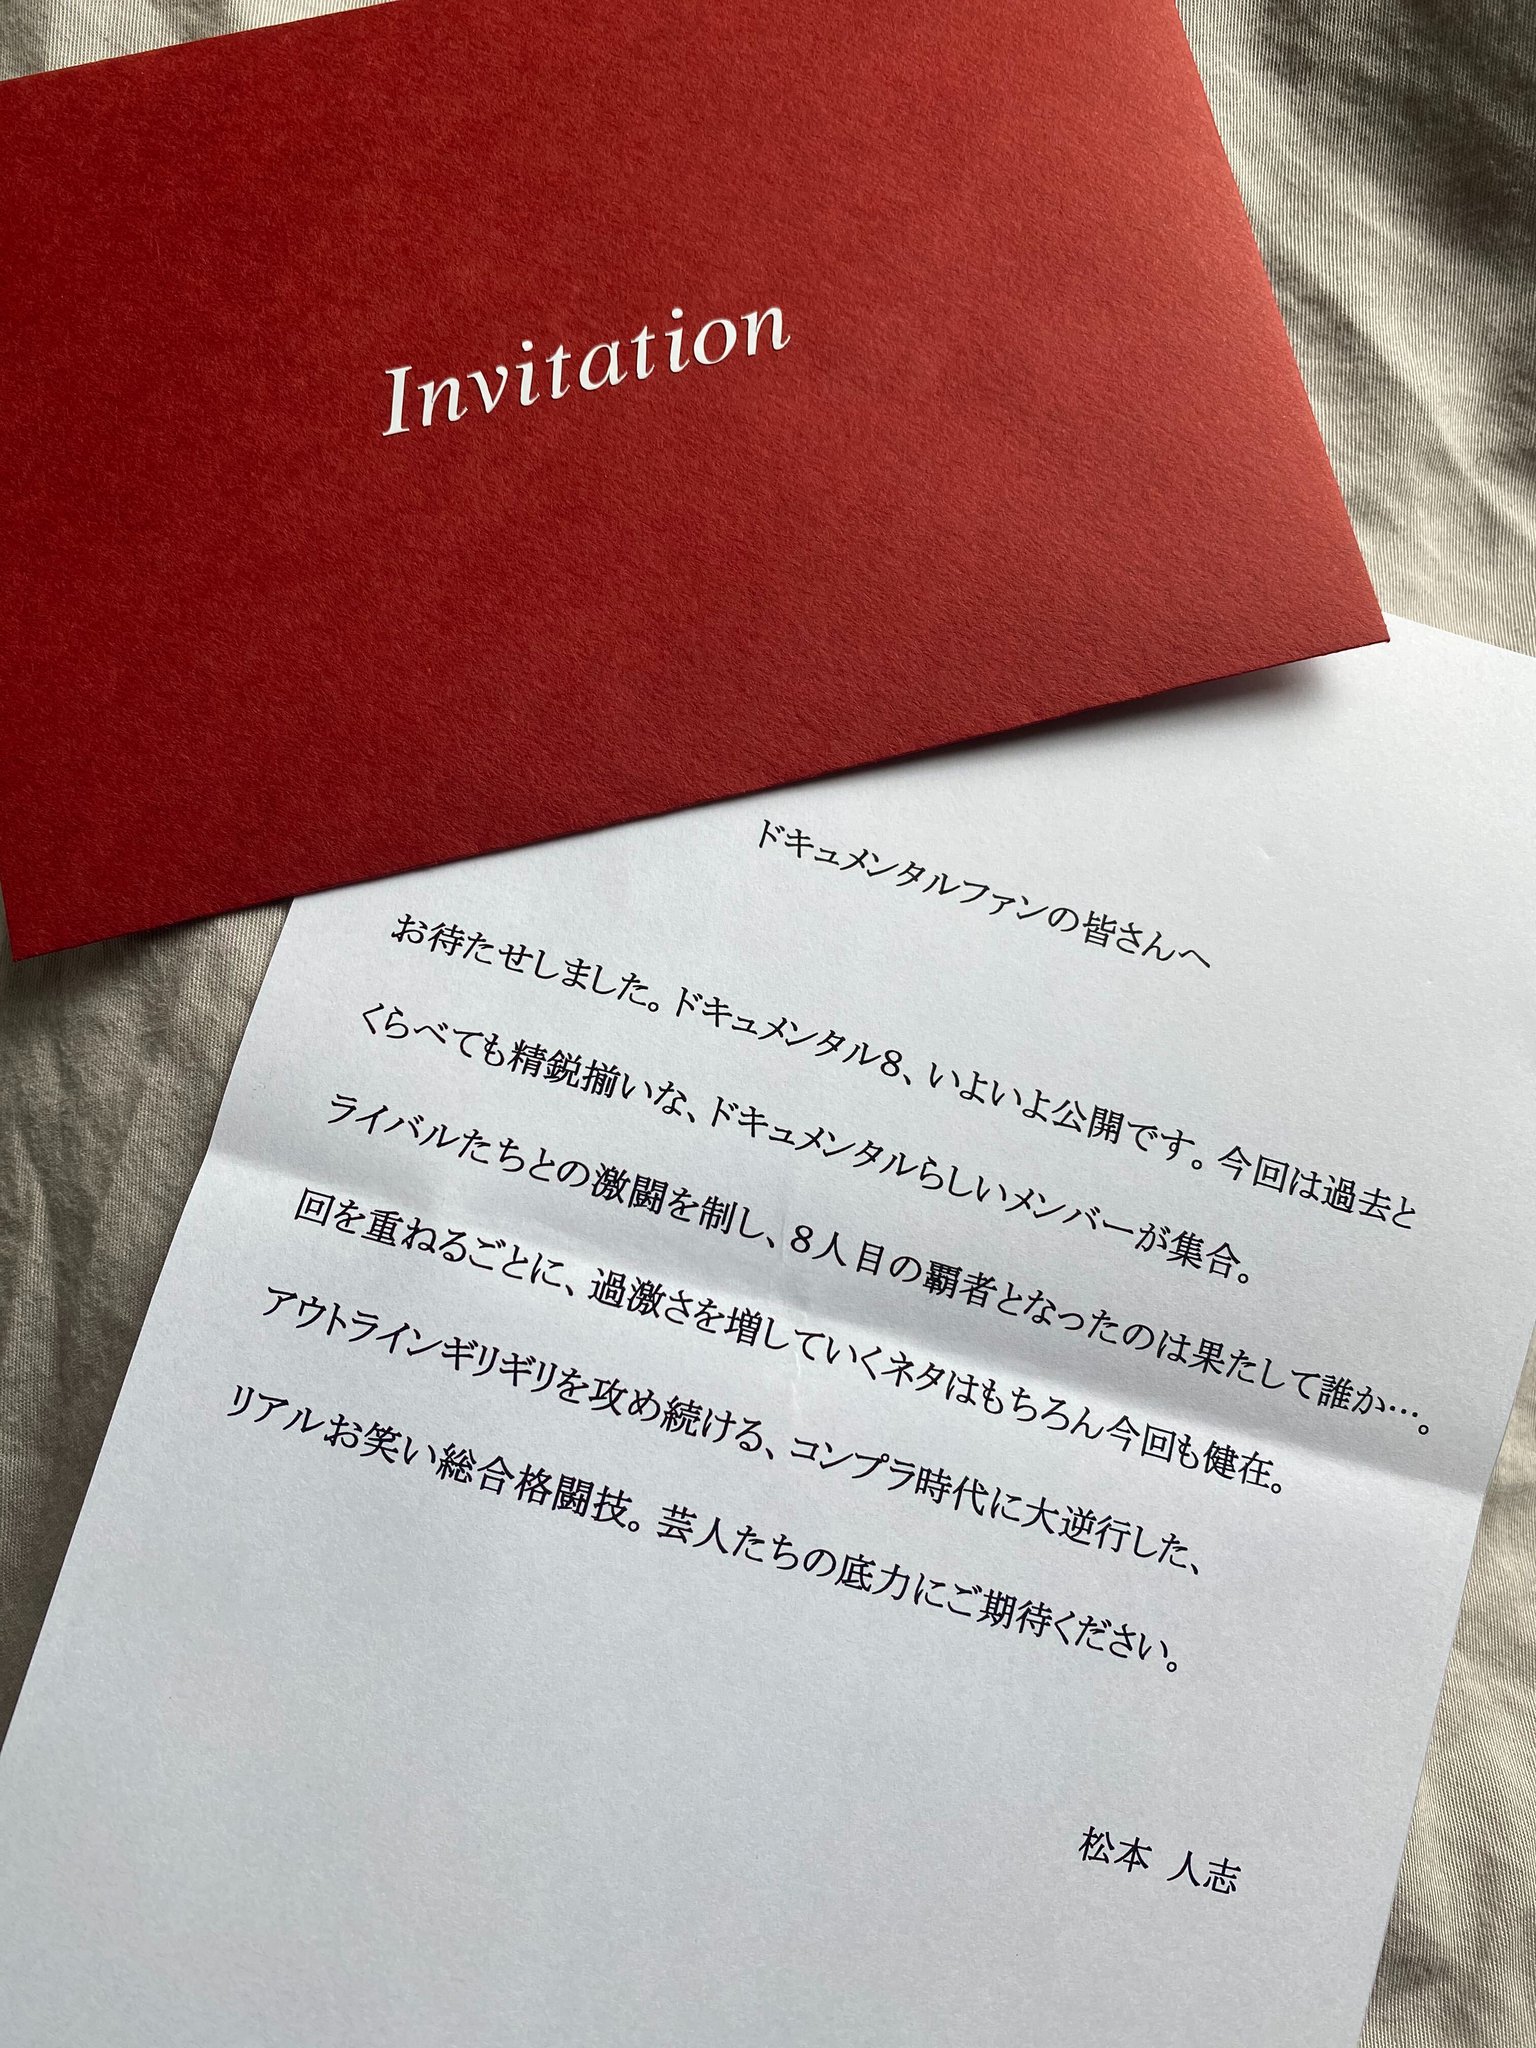 Invitation
ドキュメンタルファンの皆さんへ
お待たせしました。ドキュメンタル8、いよいよ公開です。今回は過去と
くらべても精鋭揃いな、ドキュメンタルらしいメンバーが集合。
ライバルたちとの激闘を制し、8人目の覇者となったのは果たして誰か…。
回を重ねるごとに、過激さを増していくネタはもちろん今回も健在。
アウトラインギリギリを攻め続ける、コンプラ時代に大逆行した、
リアルお笑い総合格闘技。芸人たちの底力にご期待ください。
松本 人志